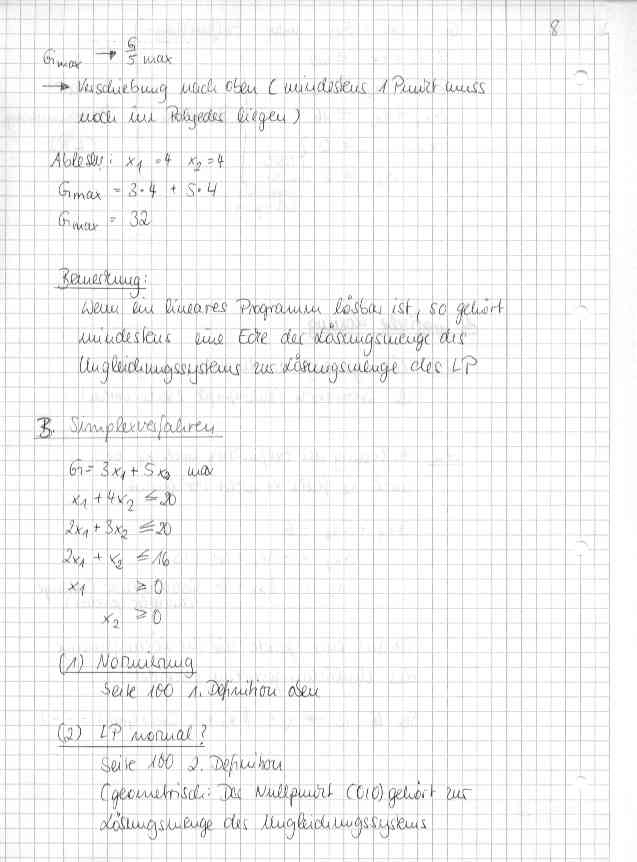 8
Gmax → G/5 max
→ Verschiebung nach oben (mindestens 1 Punkt muss
noch im Polyeder liegen)
Ablesen: x₁ = 4 x₂ = 4
Gmax = 3·4 + 5·4
Gmax = 32
Bemerkung:
Wenn ein lineares Programm lösbar ist, so gehört
mindestens eine Ecke der Lösungsmenge des
Ungleichungssystems zur Lösungsmenge des LP
3. Simplexverfahren
G = 3x₁ + 5x₂ max
x₁ + 4x₂ ≤ 20
2x₁ + 3x₂ ≤ 20
2x₁ + x₂ ≤ 16
x₁ ≥ 0
x₂ ≥ 0
(1) Normierung
Seite 100 1. Definition oben
(2) LP normal?
Seite 100 2. Definition
(geometrisch: Der Nullpunkt (0|0) gehört zur
Lösungsmenge des Ungleichungssystems